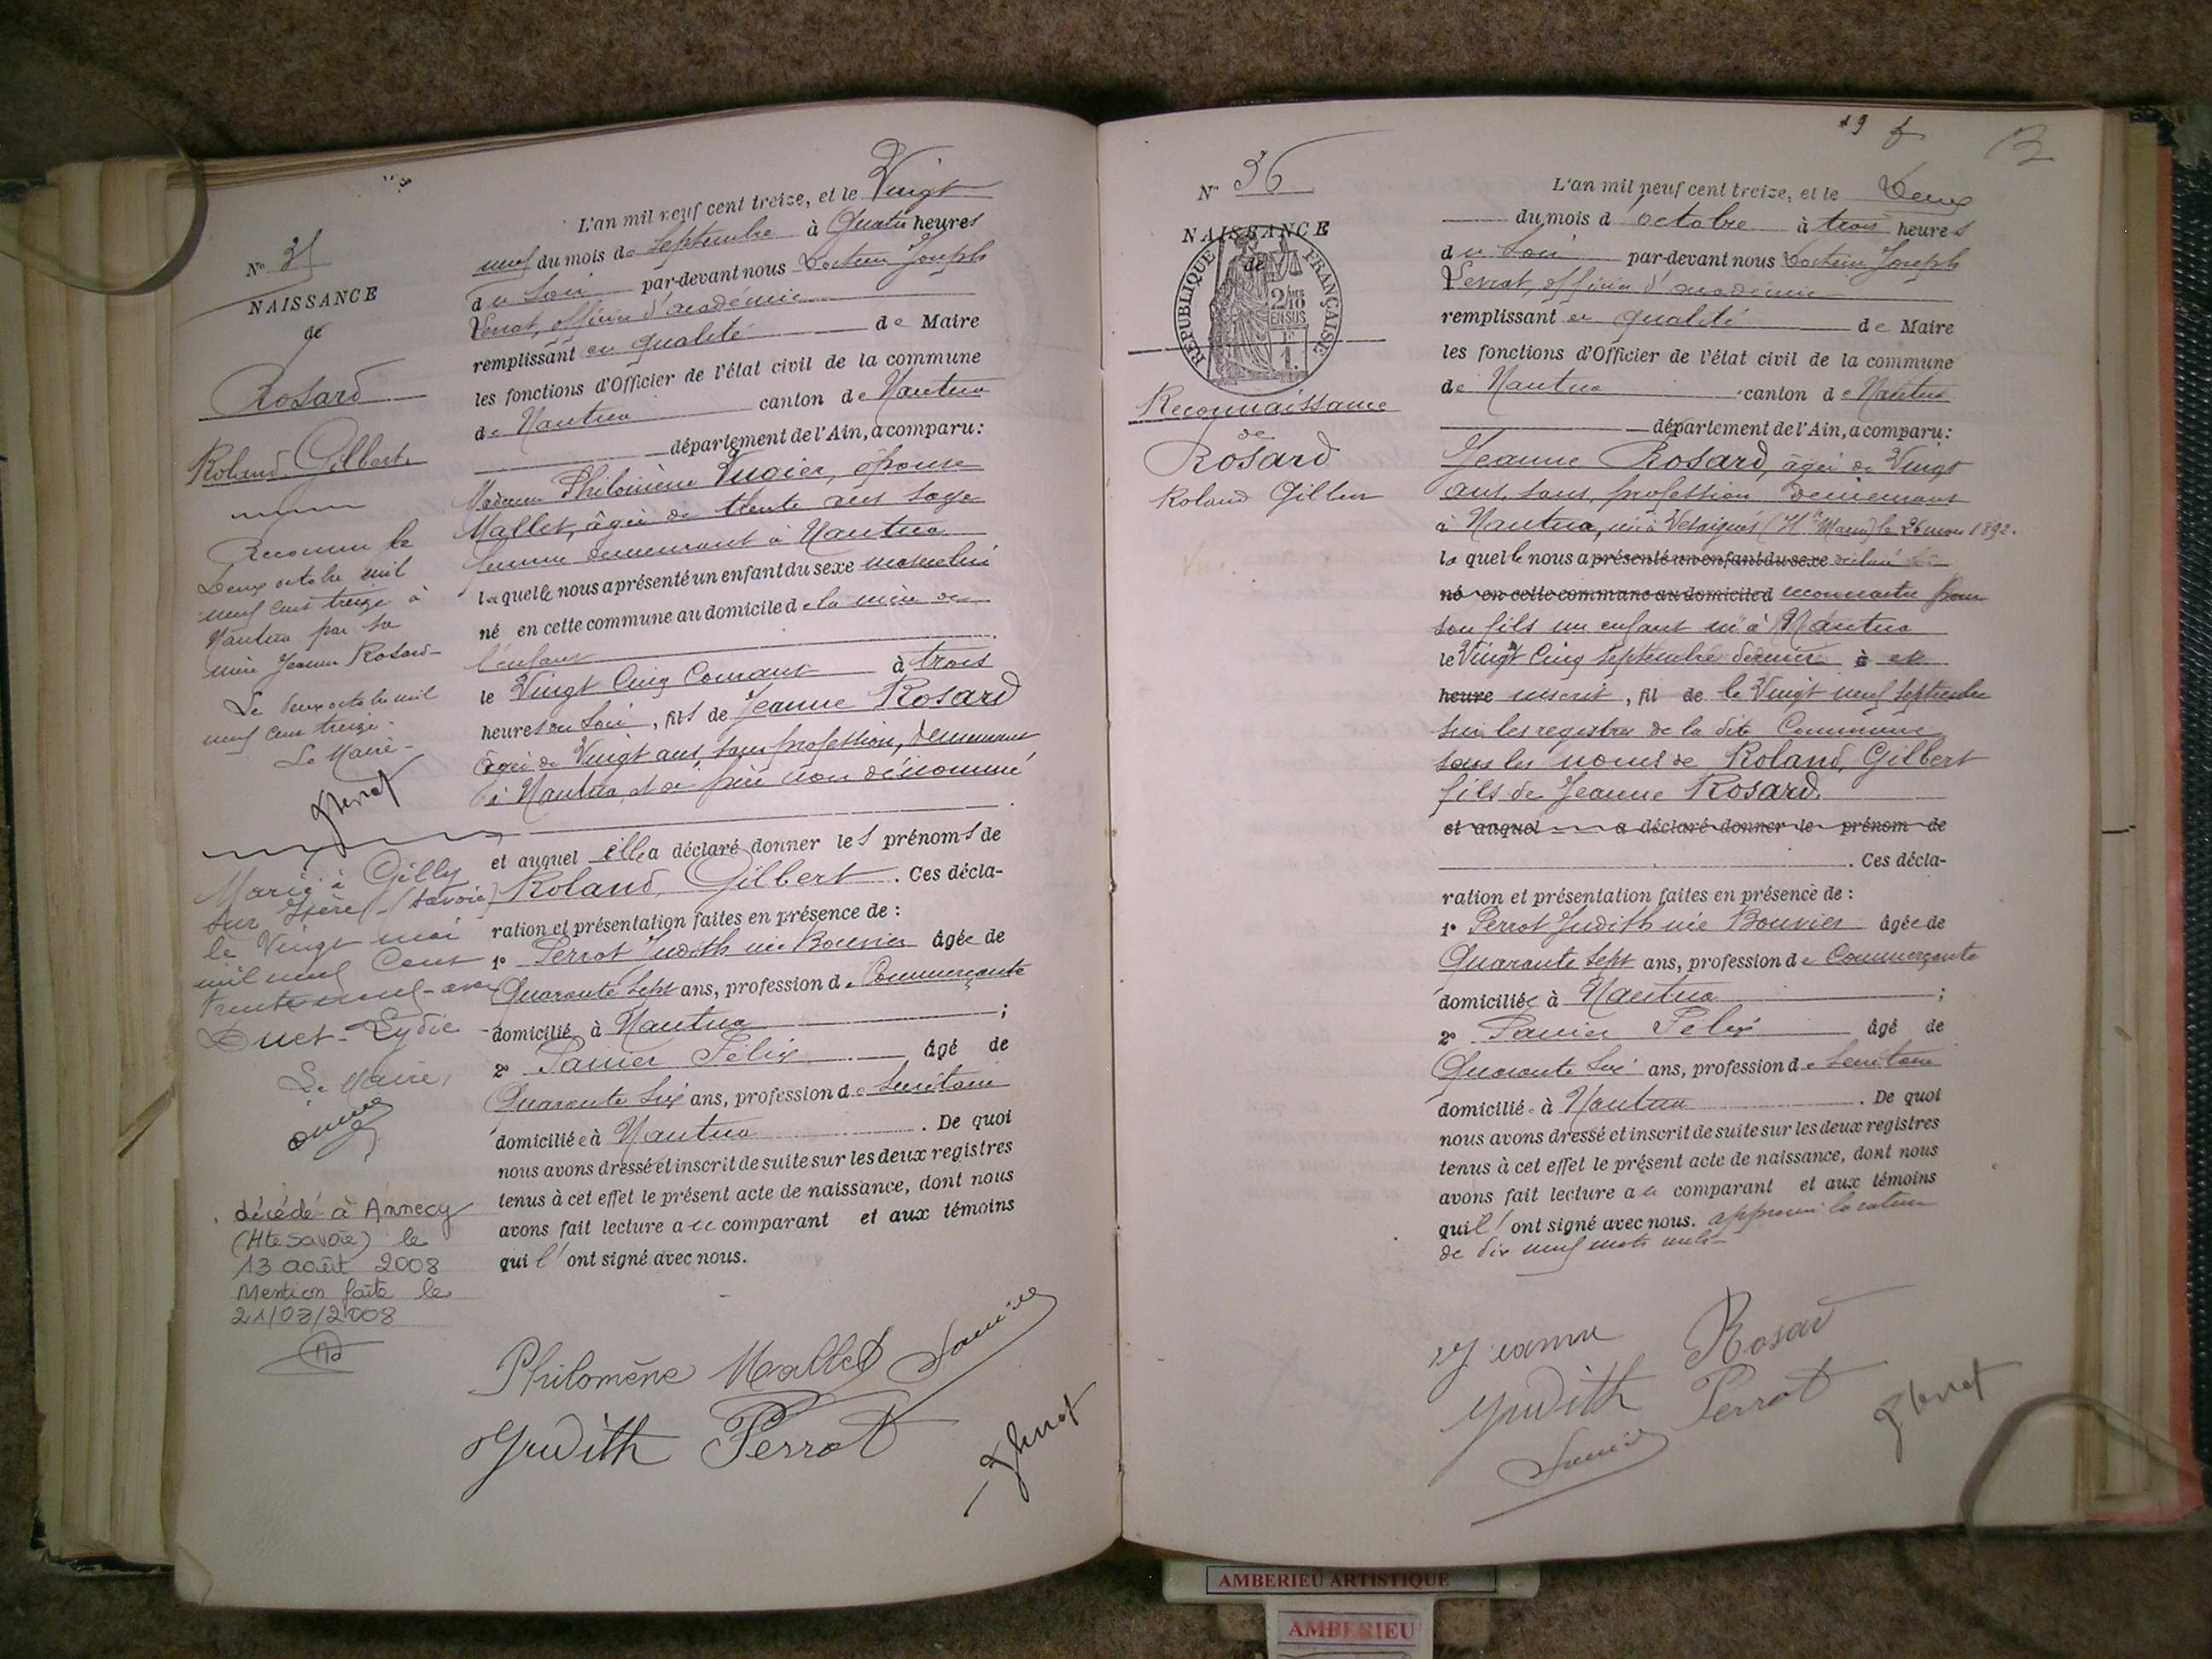 N° 35
NAISSANCE
de
Rosard
Roland Gilbert
Reconnu le
Deux octobre mil
neuf cent treize à
Nantua par sa
mère Jeanne Rosard
Le deux octobre mil
neuf cent treize
Le Maire
Marié à Gilly
sur Isère (Savoie)
le Vingt mai
mil neuf Cent
trente neuf avec
Duet Lydie
Le Maire,
décédé à Annecy
(Hte Savoie) le
13 août 2008
Mention faite le
L'an mil neuf cent treize, et le Vingt
neuf du mois de Septembre à Quatre heures
du Soir par-devant nous Docteur Joseph
officier d'académie
remplissant en qualité de Maire
les fonctions d'Officier de l'état civil de la commune
de Nantua canton de Nantua
département de l'Ain, a comparu:
Madame Philomène Vugier, épouse
Mallet, âgée de trente ans sage
femme demeurant à Nantua
laquelle nous a présenté un enfant du sexe masculin
né en cette commune au domicile de la mère de
l'enfant
le Vingt Cinq Courant à trois
heures du Soir, fils de Jeanne Rosard
âgée de Vingt ans, sans profession, demeurant
à Nantua et de père non dénommé
et auquel elle a déclaré donner les prénoms de
Roland, Gilbert. Ces décla-
ration et présentation faites en présence de :
1° Perrot Judith née Bouvier âgée de
Quarante Sept ans, profession de Commerçante
domicilié à Nantua ;
2° Félix âgé de
Quarante Six ans, profession de Secrétaire
domiciliée à Nantua. De quoi
nous avons dressé et inscrit de suite sur les deux registres
tenus à cet effet le présent acte de naissance, dont nous
avons fait lecture au comparant et aux témoins
qui l'ont signé avec nous.
Philomène Mallet
Judith Perrot
19 f
N° 36
NAISSANCE
de
RÉPUBLIQUE FRANÇAISE
2/10
EN SUS
F
1.
Reconnaissance
de
Rosard
Roland Gilbert
L'an mil neuf cent treize, et le Deux
du mois d'octobre à trois heures
du Soir par-devant nous Docteur Joseph
officier d'académie
remplissant en qualité de Maire
les fonctions d'Officier de l'état civil de la commune
de Nantua canton de Nantua
département de l'Ain, a comparu:
Jeanne Rosard, âgée de Vingt
ans, sans profession demeurant
à Nantua, née à (Hte Marne) le 26 mars 1892.
laquelle nous a présenté un enfant du sexe déclaré
né en cette commune au domicile d reconnaître pour
son fils un enfant né à Nantua
le Vingt Cinq Septembre dernier à et
heure inscrit, fil de le Vingt neuf Septembre
sur les registres de la dite Commune
sous les noms de Roland, Gilbert
fils de Jeanne Rosard.
et auquel a déclaré donner le prénom de
. Ces décla-
ration et présentation faites en présence de :
1° Perrot Judith née Bouvier âgée de
Quarante Sept ans, profession de Commerçante
domiciliée à Nantua ;
2° Félix âgé de
Quarante Six ans, profession de Secrétaire
domicilié à Nantua. De quoi
nous avons dressé et inscrit de suite sur les deux registres
tenus à cet effet le présent acte de naissance, dont nous
avons fait lecture au comparant et aux témoins
qui l'ont signé avec nous. approuvé la rature
de dix neuf mots nuls
Jeanne Rosard
Judith Perrot
AMBERIEU ARTISTIQUE
AMBERIEU